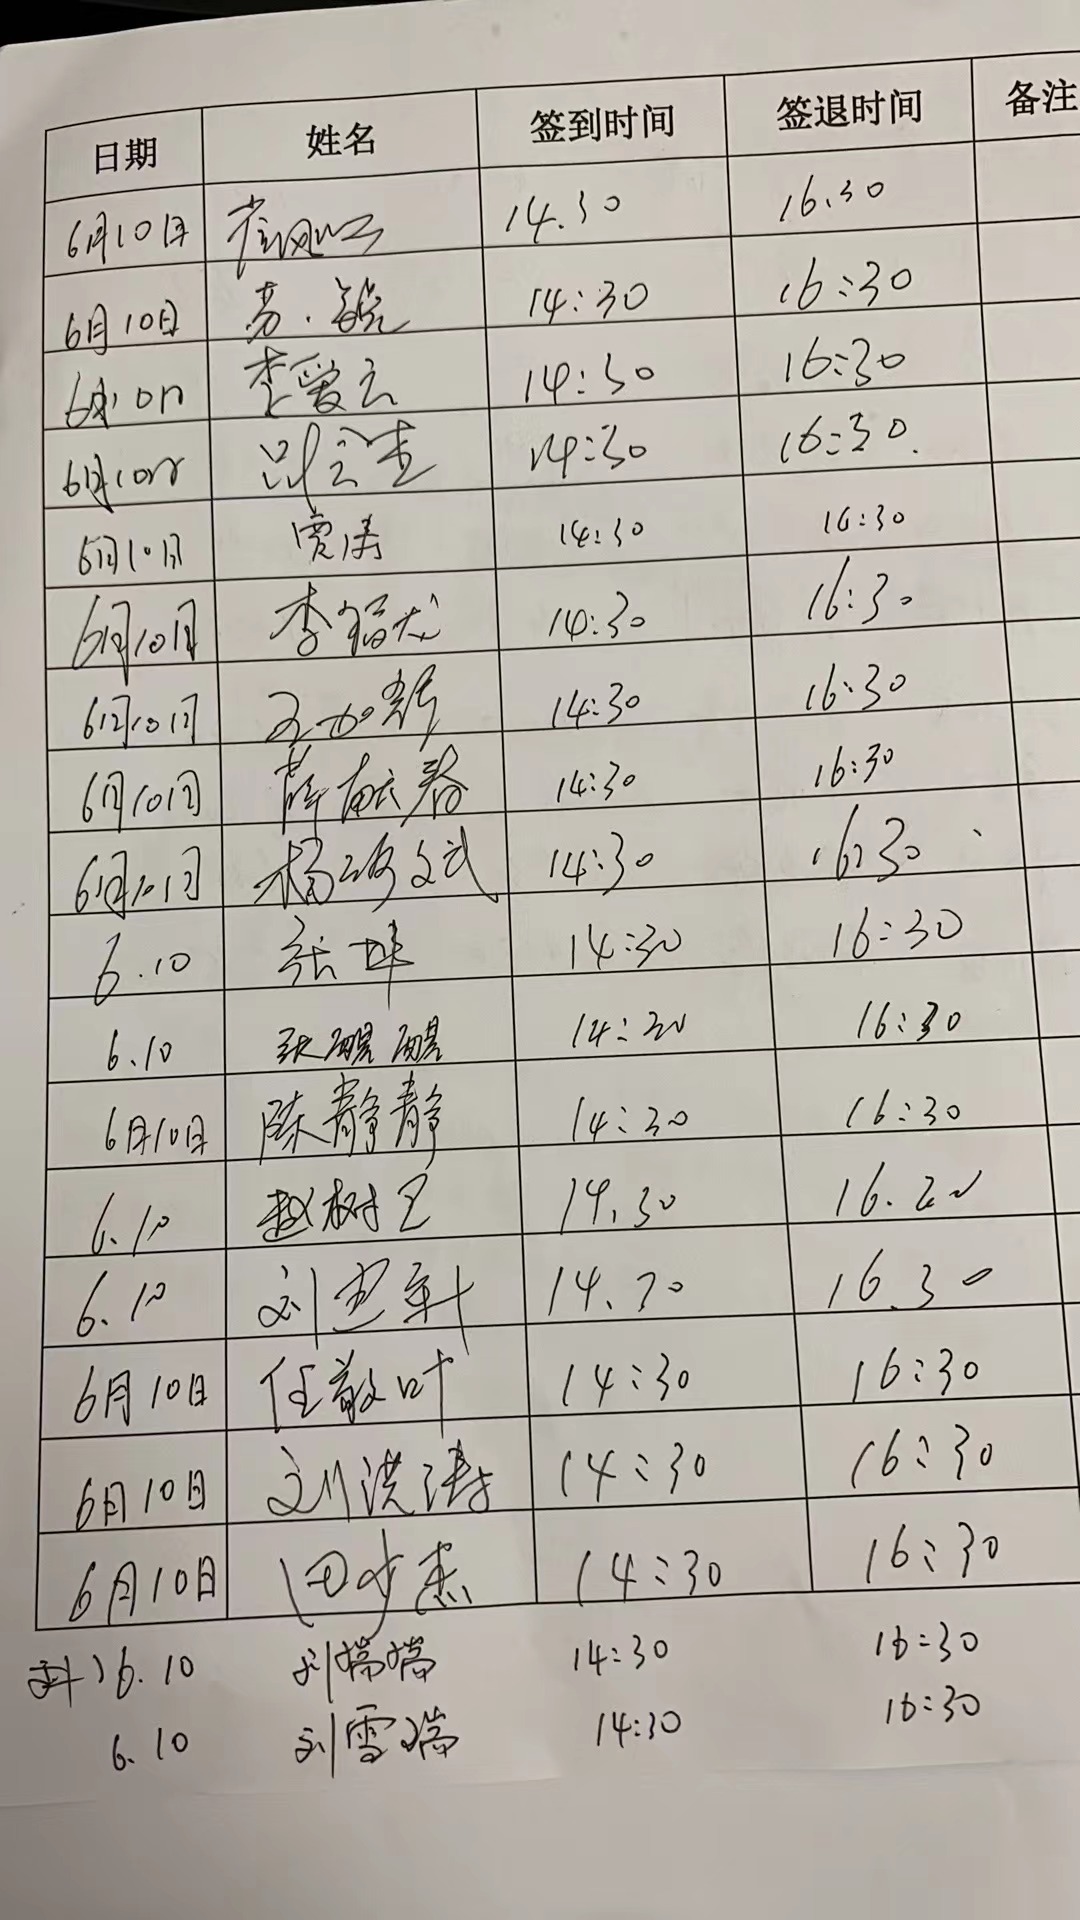 日期 姓名 签到时间 签退时间 备注
6月10日 14.30 16.30
6月10日 14:30 16:30
李爱云 14:30 16:30
6月10日 14:30 16:30.
6月10日 贾涛 14:30 16:30
6月10日 李 14:30 16:30
6月10日 14:30 16:30
6月10日 薛献春 14:30 16:30
6月10日 杨 文武 14:30 16:30
6.10 张坤 14:30 16:30
6.10 张醒醒 14:30 16:30
6月10日 陈静静 14:30 16:30
6.10 赵树 14.30 16.30
6.10 刘 14.30 16.30
6月10日 任敬叶 14:30 16:30
6月10日 刘洪涛 14:30 16:30
6月10日 田 杰 14:30 16:30
6.10 刘端端 14:30 16:30
6.10 刘雪瑞 14:30 16:30